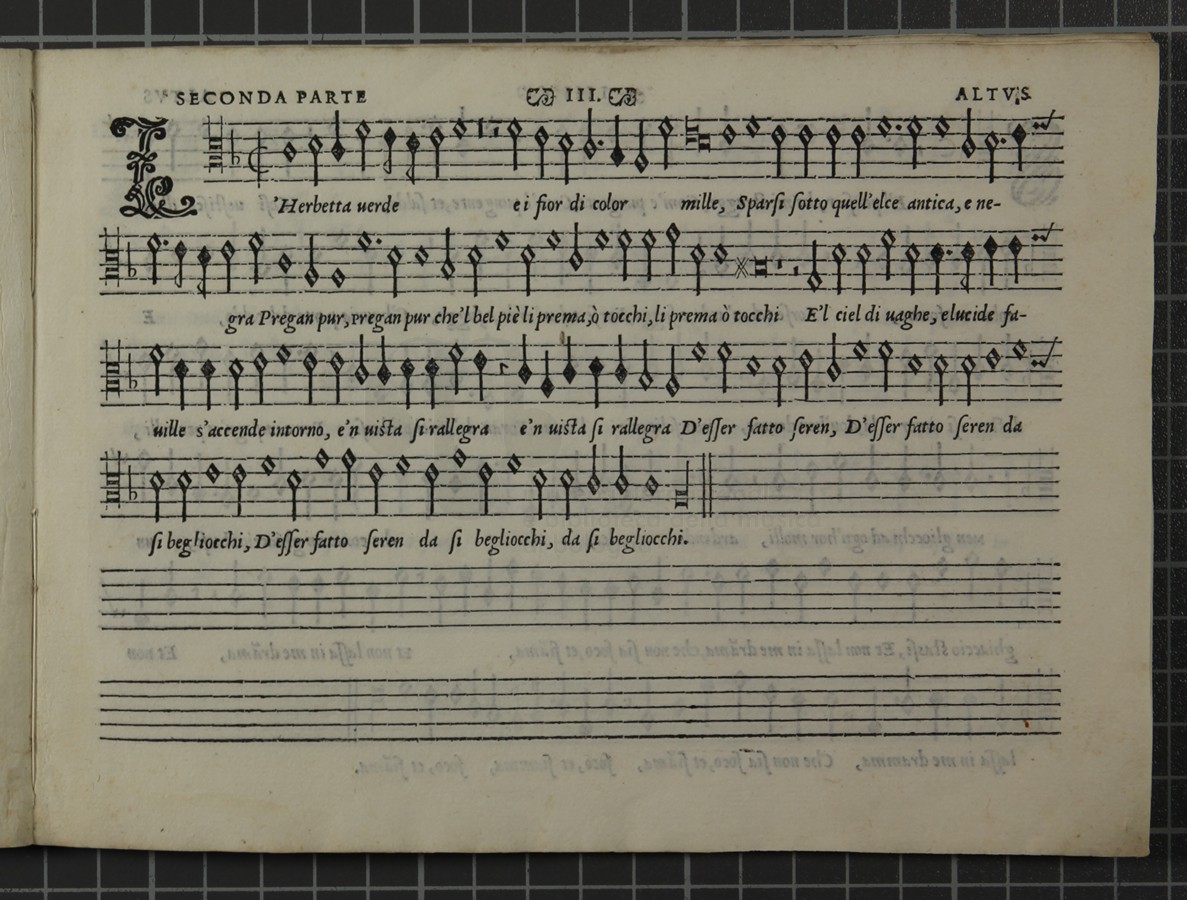 SECONDA PARTE III. ALTVS.
L'Herbetta uerde e i fior di color mille, Sparsi sotto quell'elce antica, e ne-
gra Pregan pur, pregan pur che'l bel piè li prema, ò tocchi, li prema ò tocchi E'l ciel di uaghe, e lucide fa-
uille s'accende intorno, e'n uista si rallegra e'n uista si rallegra D'esser fatto seren, D'esser fatto seren da
si begliocchi, D'esser fatto seren da si begliocchi, da si begliocchi.